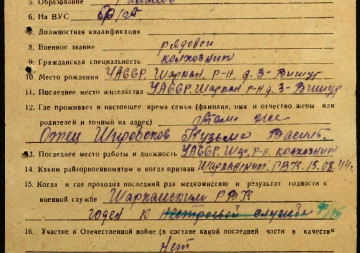 5. Образование
6. На ВУС б/об
7. Должностная квалификация
8. Военное звание рядовой
9. Гражданская специальность колхозник
10. Место рождения УАССР. Шаркан. р-н. д. З-Вишур
11. Последнее место жительства УАССР. Шаркан р-н д. З-Вишур
12. Где проживает в настоящее время семья (фамилия, имя и отчество жены или
родителей и точный их адрес) Там же
Отец Широбоков Кузьма Василь.
13. Последнее место работы и должность УАССР. Шар. р-н. колхозник
14. Каким райгорвоенкоматом и когда призван Шарканским. РВК. 15.08.44г.
15. Когда и где проходил последний раз медкомиссию и результат годности к
военной службе Шарканским РВК
годен к строевой службе
16. Участие в Отечественной войне (в составе какой последней части в качестве
Нет